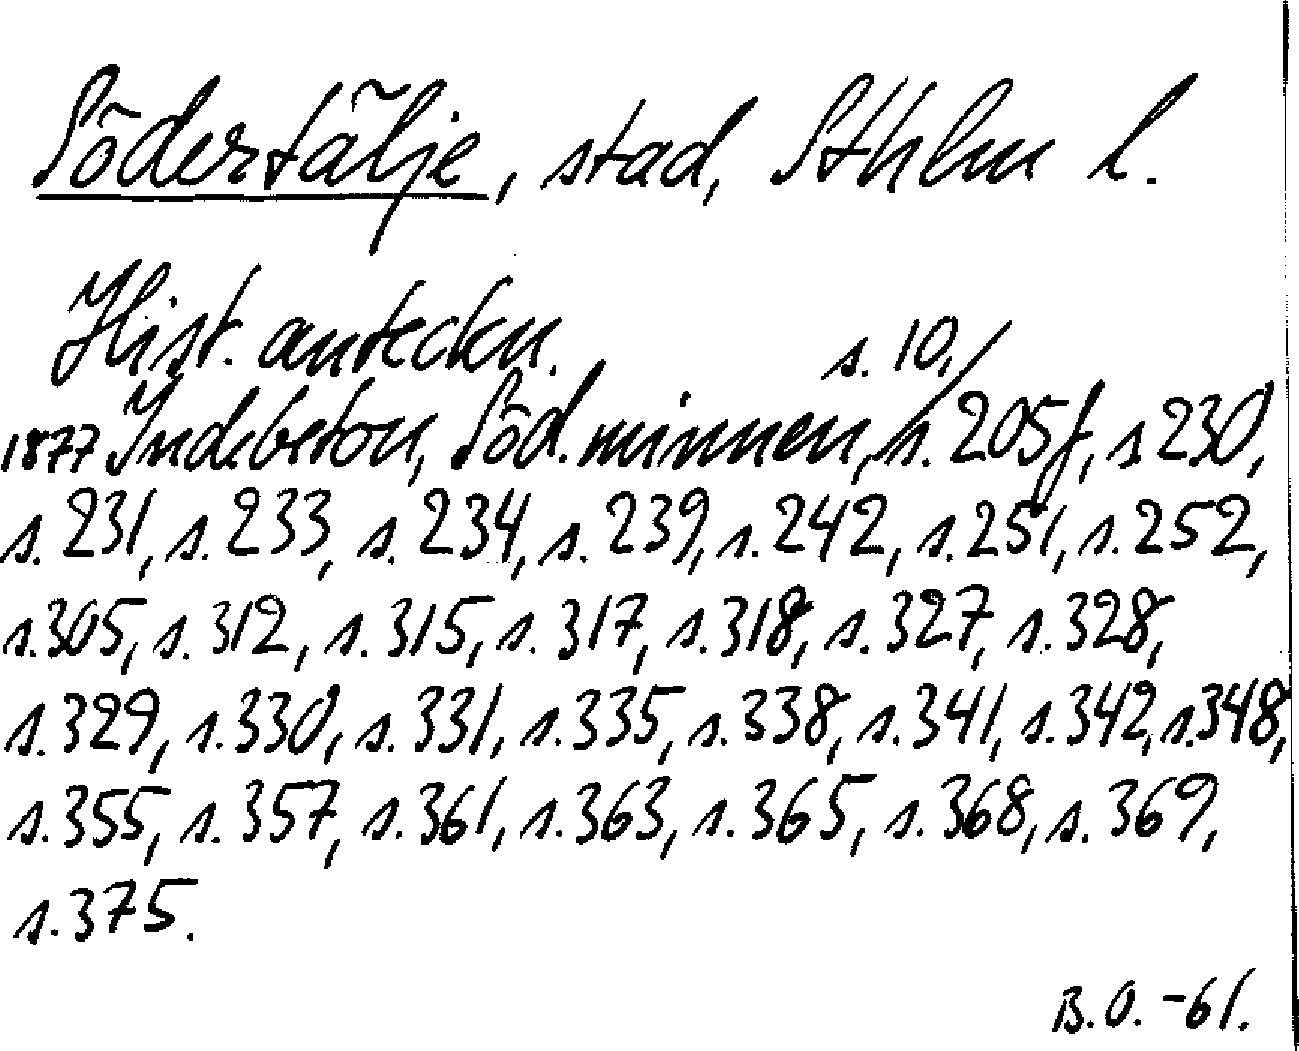 Södertälje, stad, Sthlm l.
Hist. anteckn.
s. 10,
1877 Indebetou, Söd. minnen, s. 205f, s 230,
s. 231, s. 233, s. 234, s. 239, s. 242, s. 251, s. 252,
s. 305, s. 312, s. 315, s. 317, s. 318, s. 327, s. 328,
s. 329, s. 330, s. 331, s. 335, s. 338, s. 341, s. 342, s. 348,
s. 355, s. 357, s. 361, s. 363, s. 365, s. 368, s. 369,
s. 375.
B.O. -61.